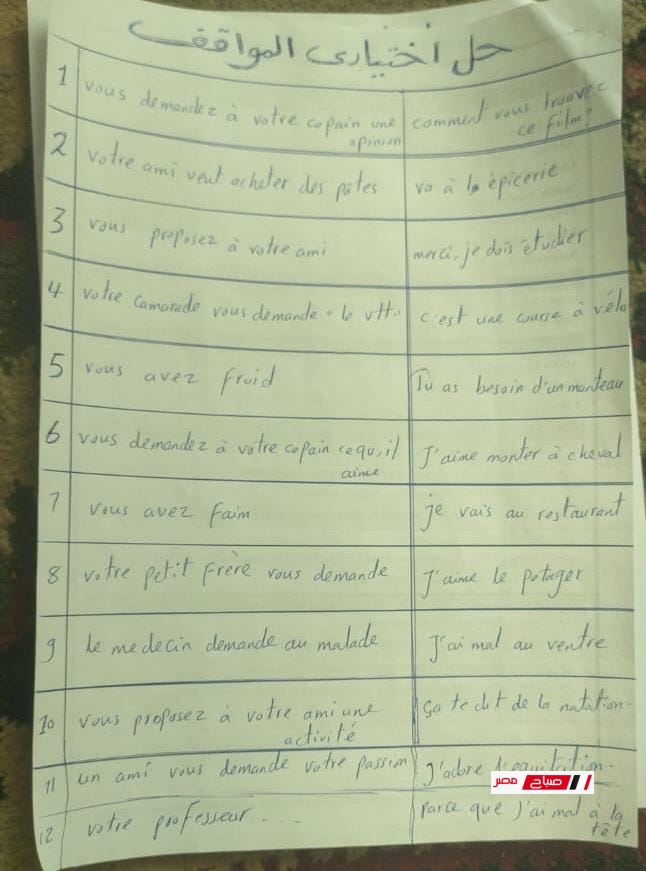 حل اختيارى المواقف
1 vous demandez à votre copain une opinion comment vous trouvez ce film?
2 votre ami veut acheter des pâtes va à la épicerie
3 vous proposez à votre ami merci, je dois étudier
4 votre camarade vous demande "le vtt" c'est une course à vélo
5 vous avez froid Tu as besoin d'un manteau
6 vous demandez à votre copain ce qu'il aime J'aime monter à cheval
7 vous avez faim je vais au restaurant
8 votre petit frère vous demande J'aime le potager
9 le medecin demande au malade J'ai mal au ventre
10 vous proposez à votre ami une activité ça te dit de la natation.
11 un ami vous demande votre passion J'adore l'equitation.
صباح مصر
12 votre professeur .... Parce que J'ai mal à la tête